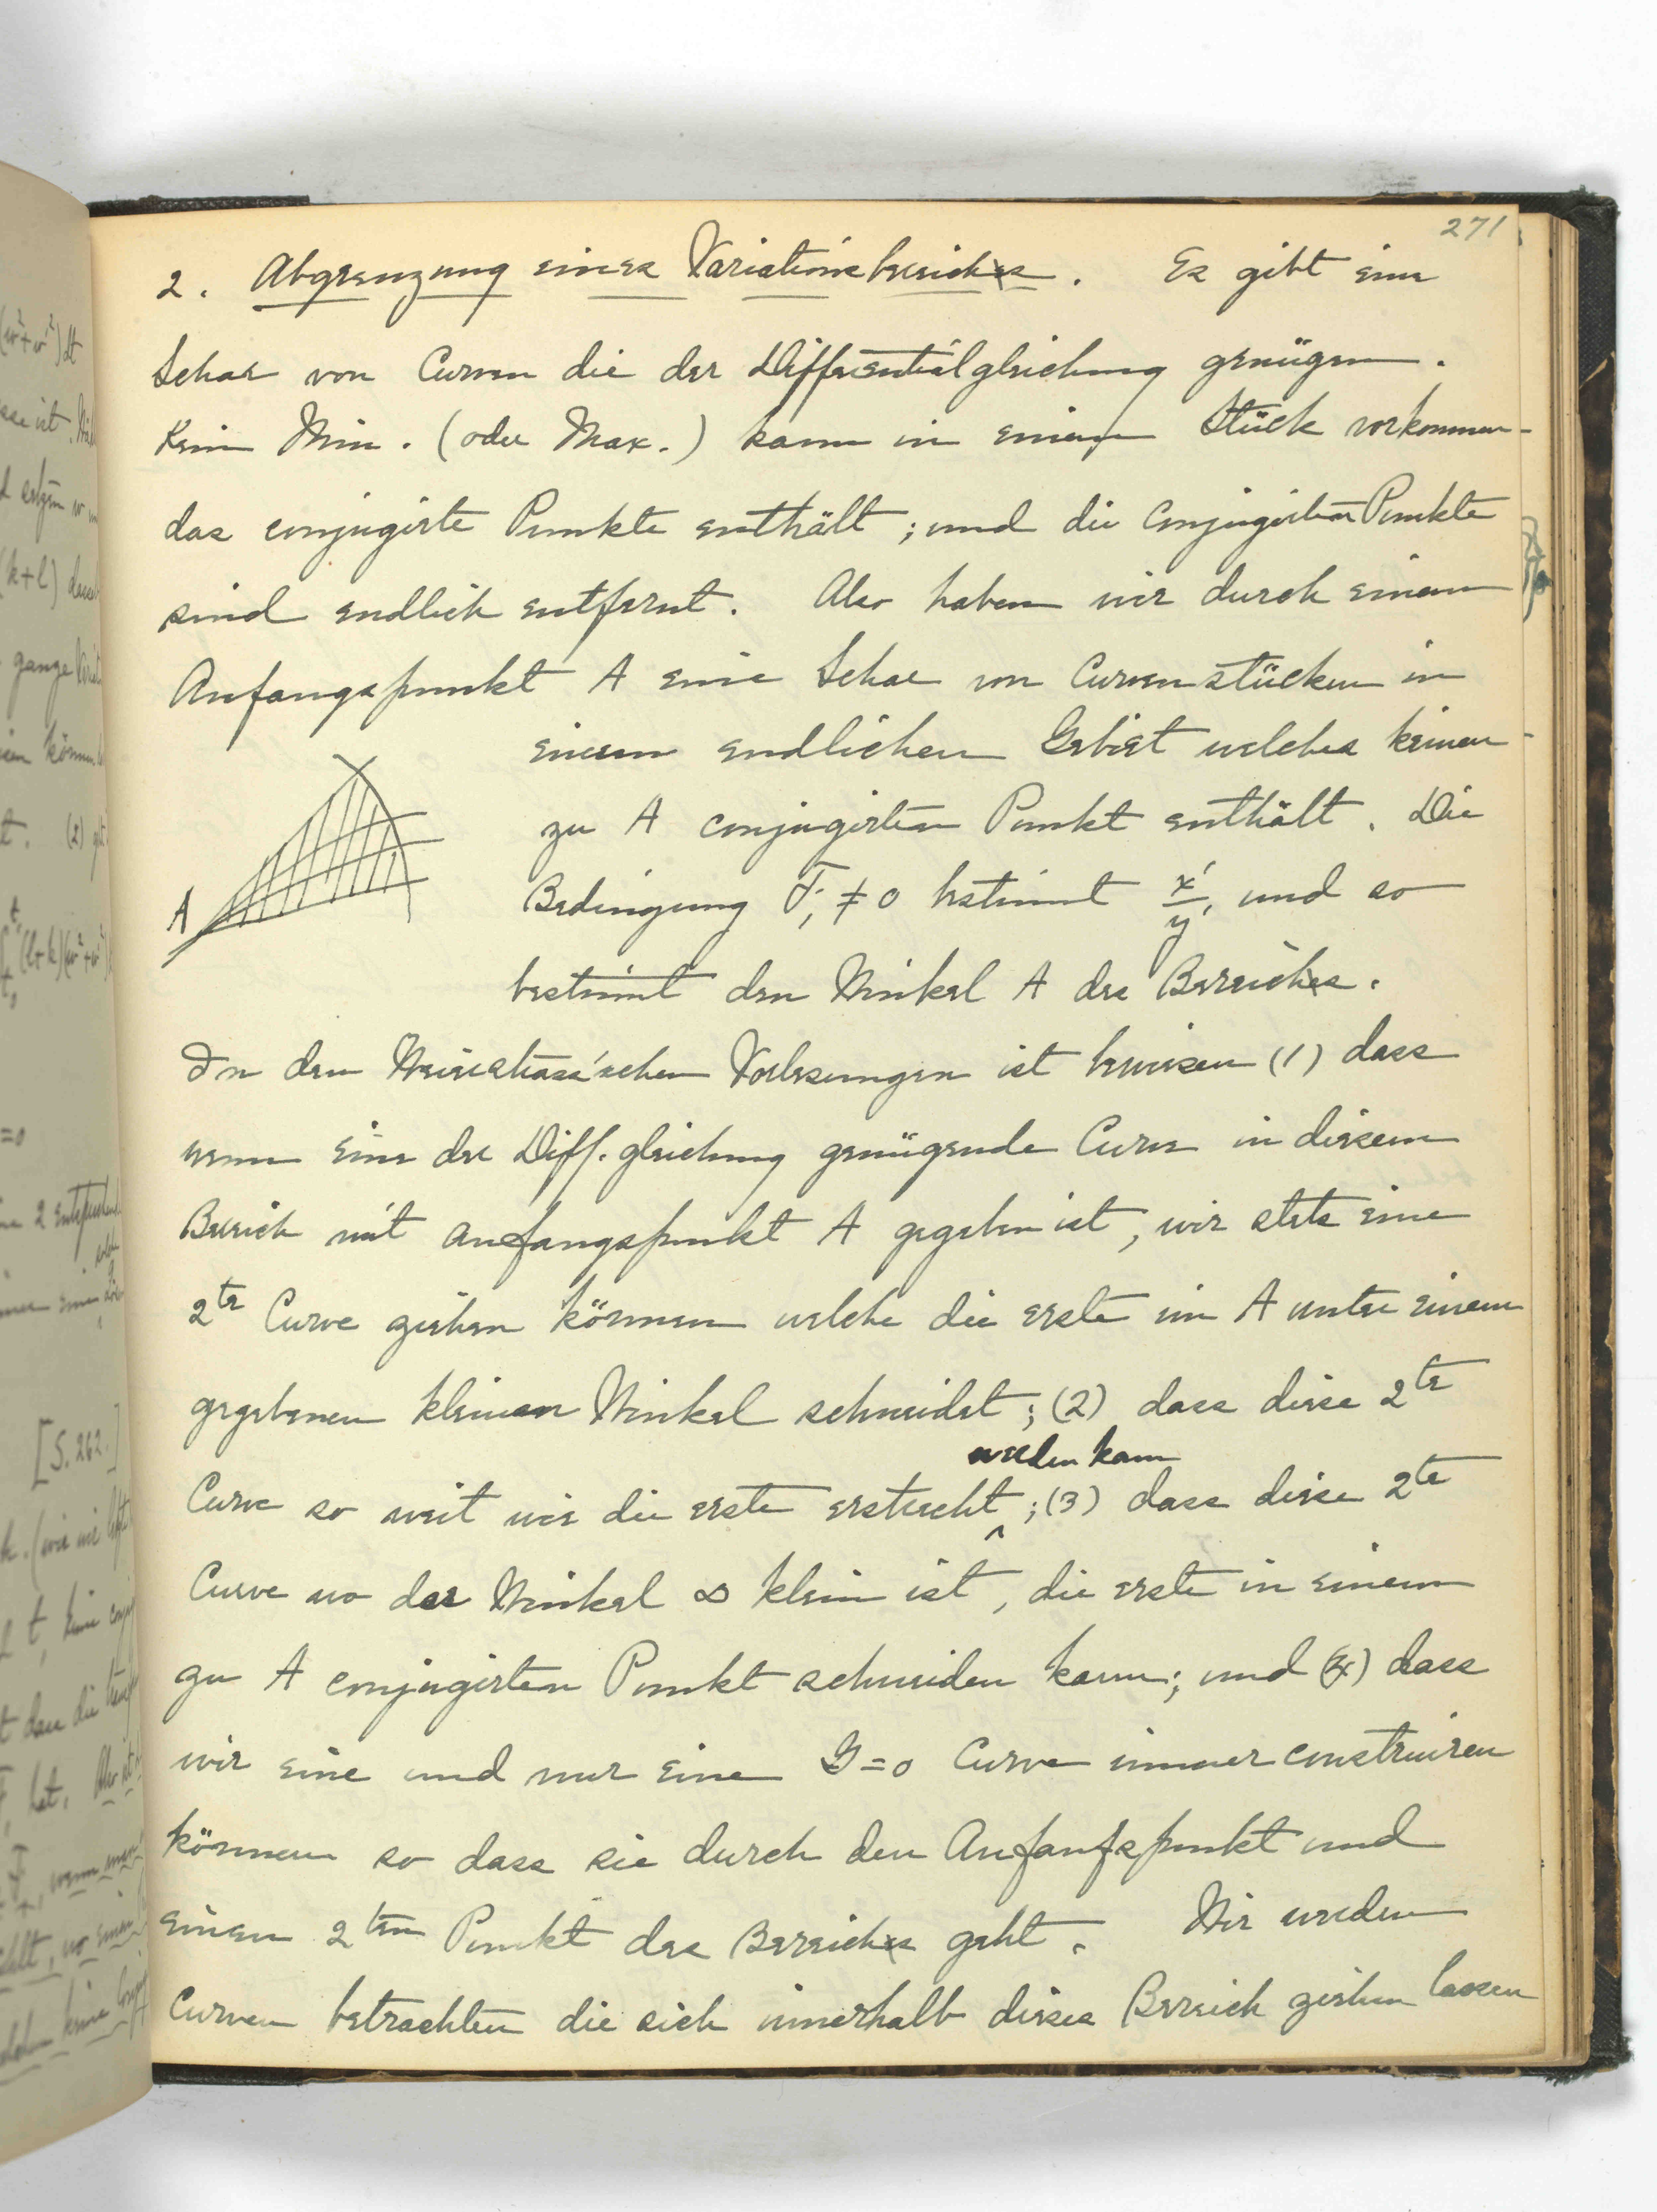 271
2. Abgrenzung eines Variationsbereiches. Es gibt eine
Schar von Curven die der Differentialgleichung genügen.
Kein Min. (oder Max.) kann in einem Stück vorkommen
das conjugirte Punkte enthält; und die conjugirten Punkte
sind endlich entfernt. Also haben wir durch einen
Anfangspunkt A eine Schar von Curvenstücken in
einem endlichen Gebiet welches keinen
zu A conjugirten Punkt enthält. Die
Bedingung F₁ ≠ 0 bestimmt x'/y', und so
bestimmt den Winkel A des Bereiches.
A
In den Weierstrass'schen Vorlesungen ist bewiesen (1) dass
wenn eine der Diff. gleichung genügende Curve in diesem
Bereich mit Anfangspunkt A gegeben ist, wir stets eine
2te Curve ziehen können welche die erste im A unter einem
gegebenen kleinen Winkel schneidet; (2) dass diese 2te
werden kann
Curve so weit wie die erste erstreckt ; (3) dass diese 2te
Curve wo der Winkel ∞ klein ist, die erste in einem
zu A conjugirten Punkt schneiden kann; und (4) dass
wir eine und nur eine G=0 Curve immer construiren
können so dass sie durch den Anfanfspunkt und
einen 2ten Punkt des Bereiches geht. Wir werden
Curven betrachten die sich innerhalb dieses Bereich ziehen lassen
[S. 262.]